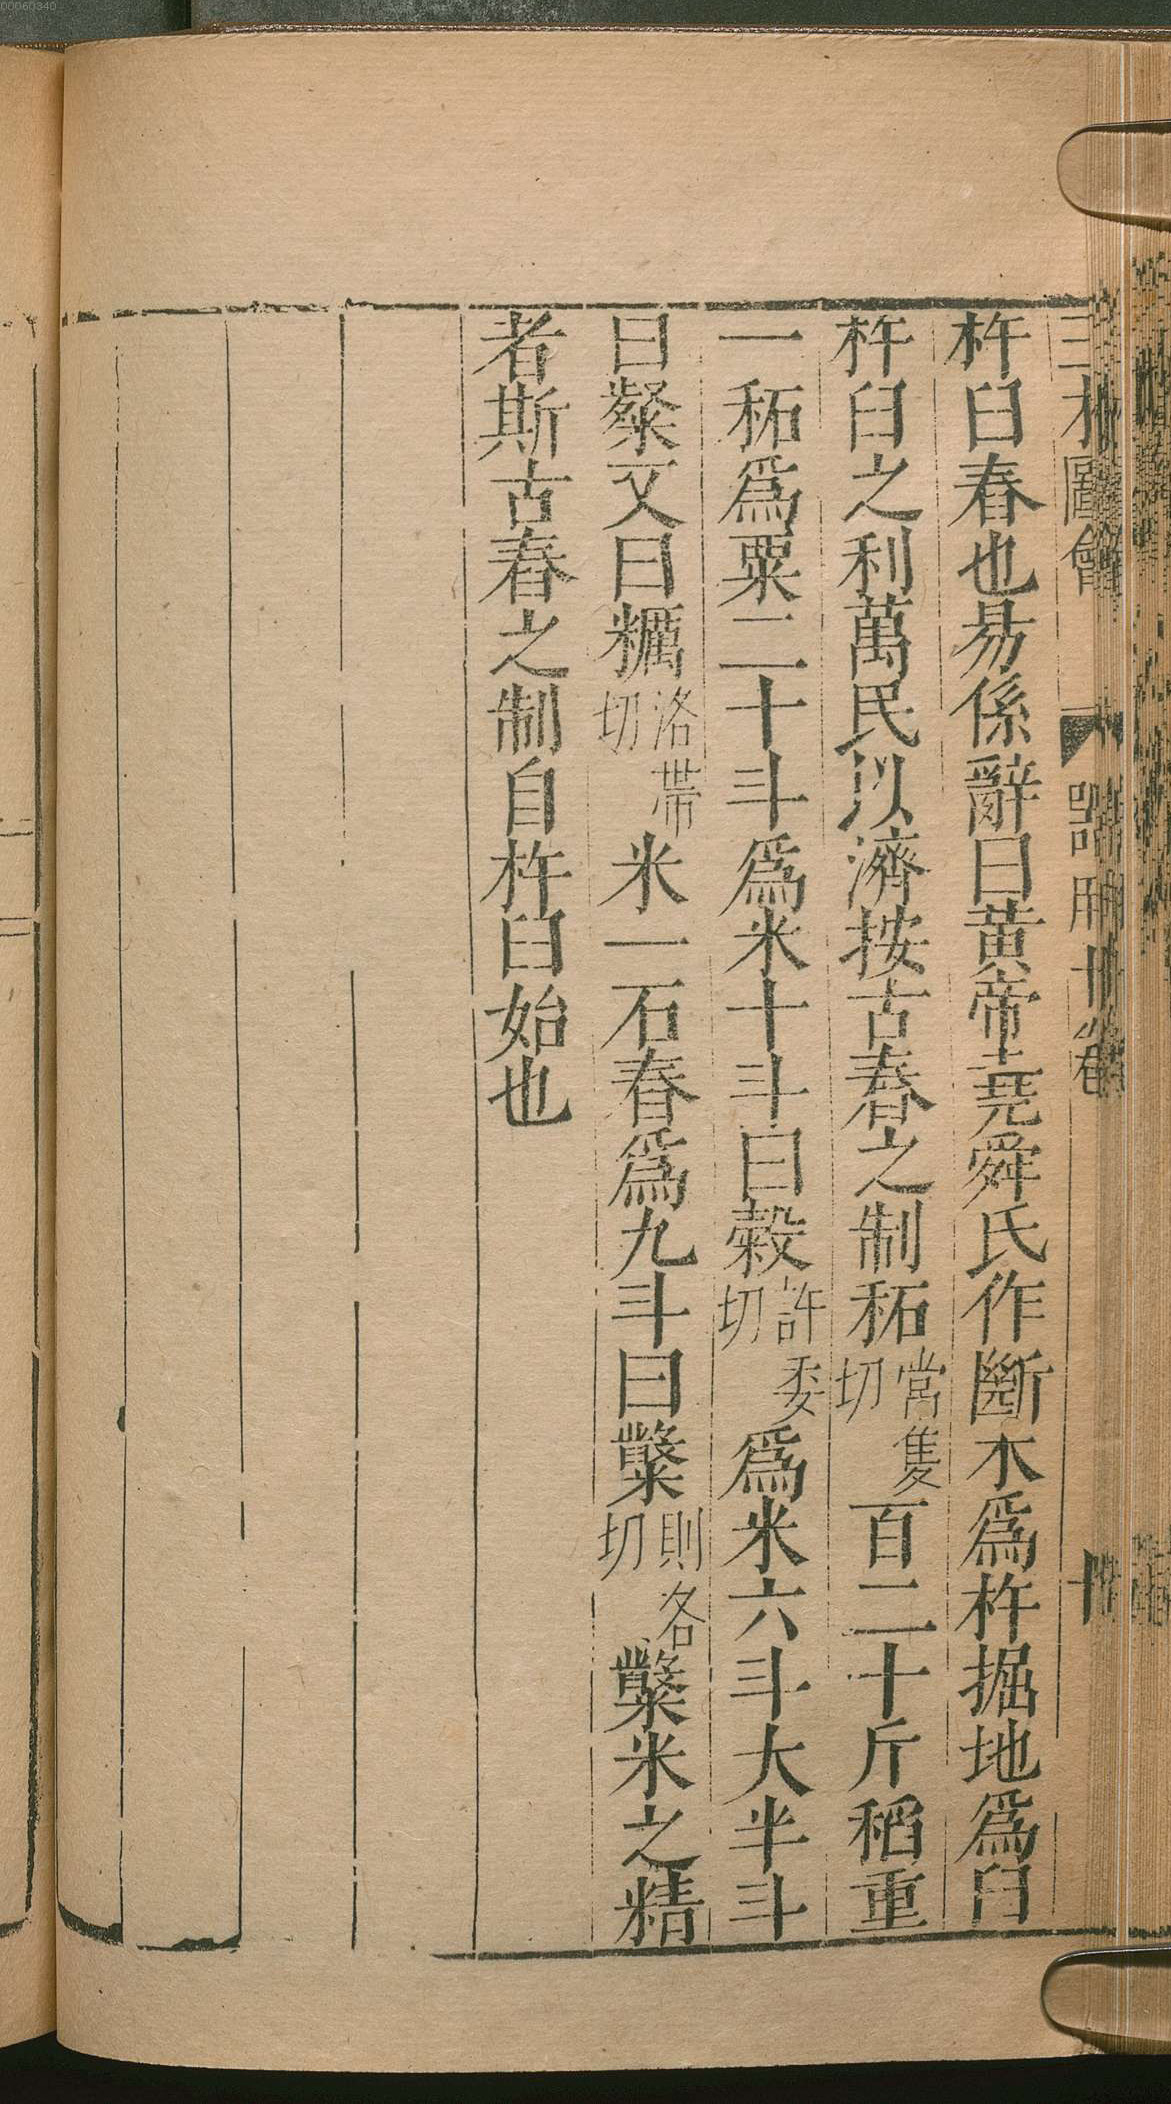 00060340
三才圖會 器用十卷 十
杵臼舂也易係辭曰黃帝堯舜氏作斷木爲杵掘地爲臼
杵臼之利萬民以濟按古舂之制䄷當隻切百二十斤稻重
一䄷爲粟二十斗爲米十斗曰榖許委切爲米六斗大半斗
曰粲又曰糲洛帶切米一石舂爲九斗曰糳則各切糳米之精
者斯古舂之制自杵臼始也